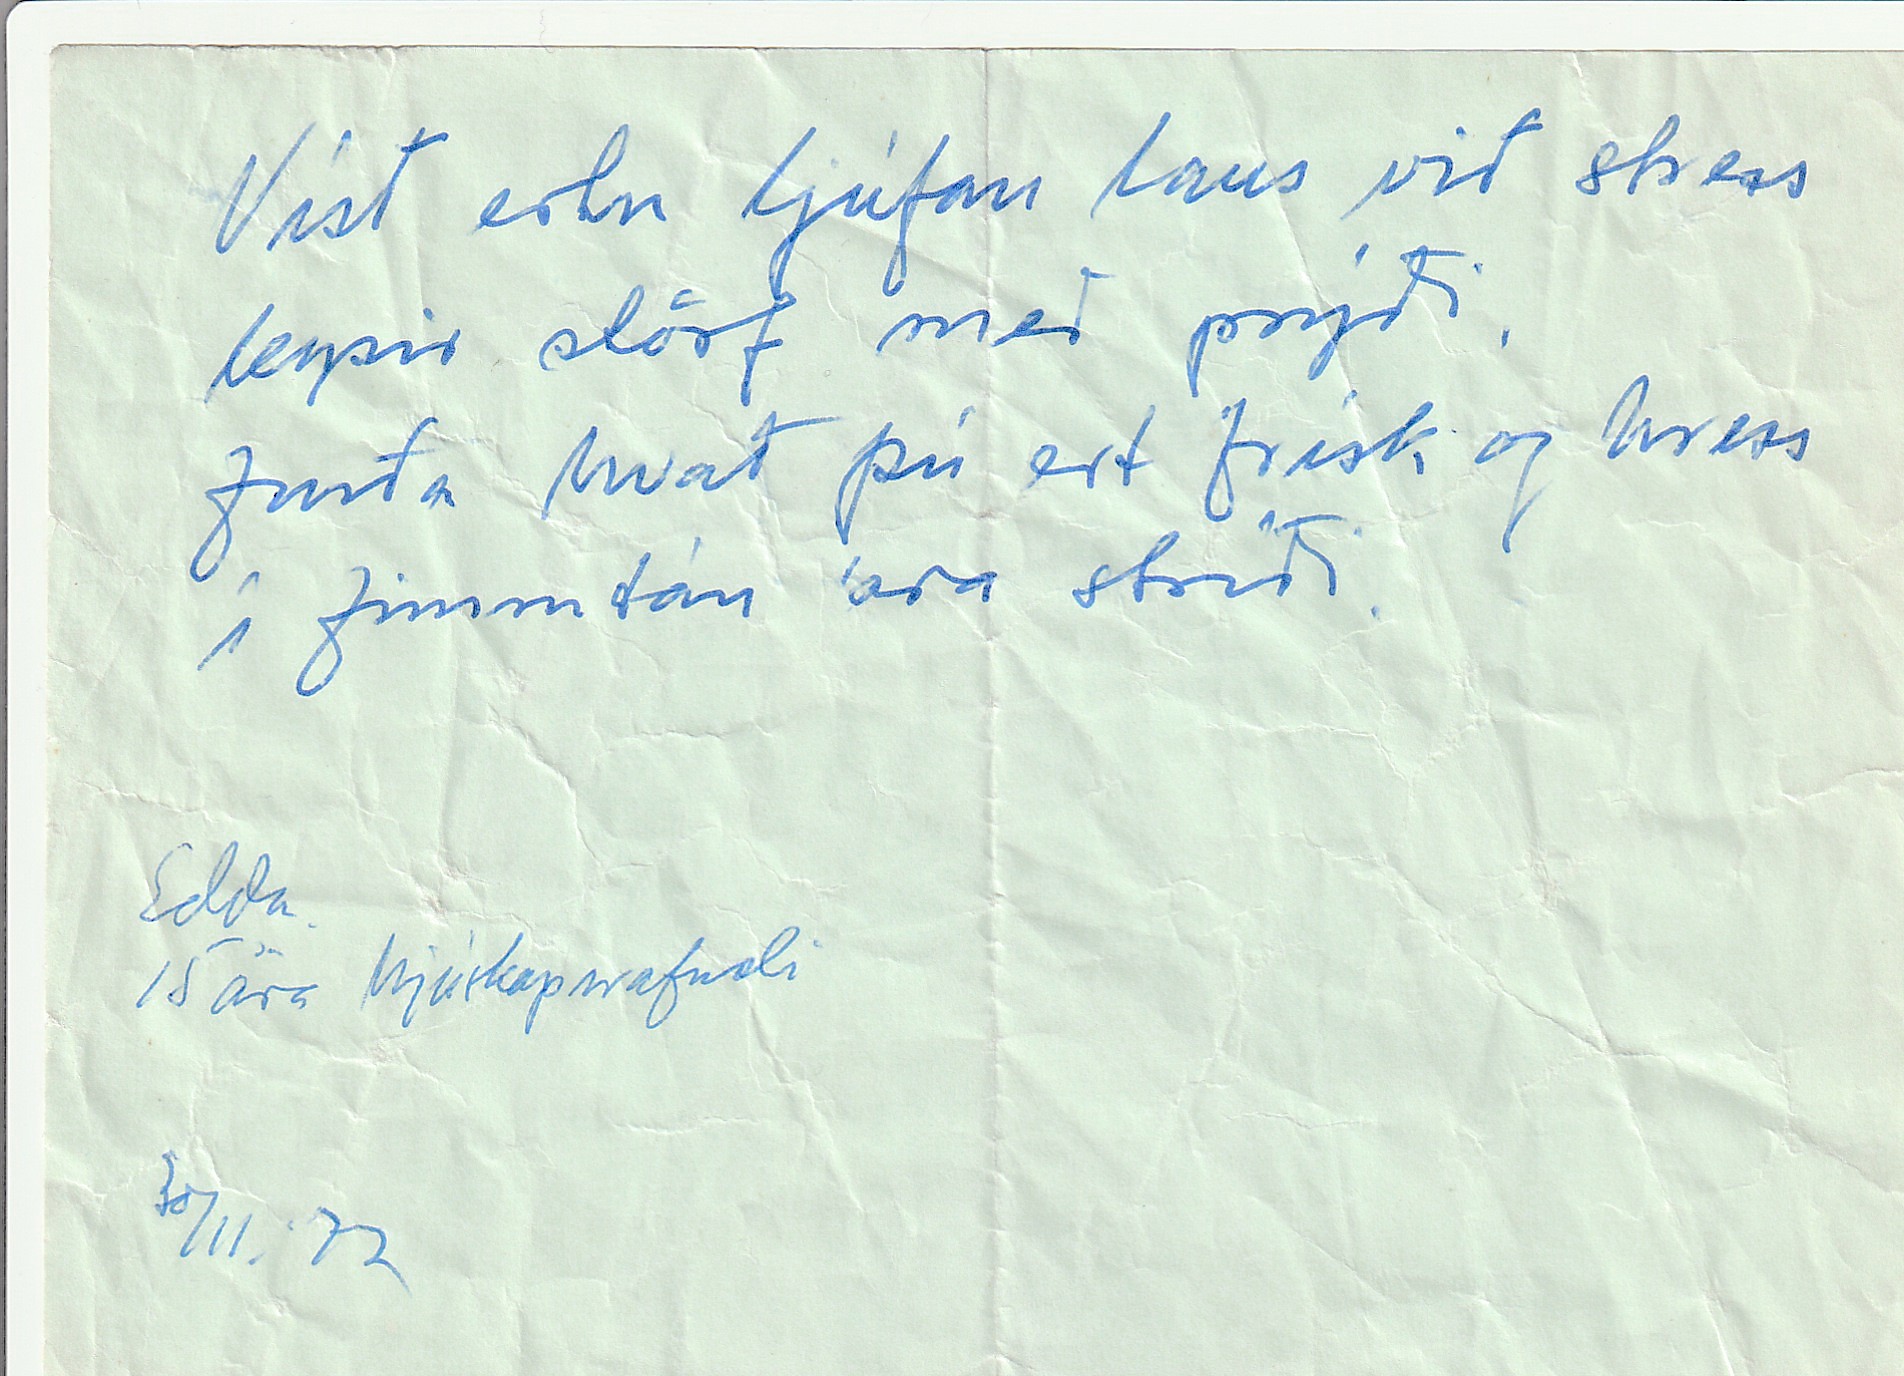 Víst ertu ljúfan laus við stress
leysir störf með prýði,
furða hvað þú ert frísk og hress
í fimmtán ára stríði.
Edda.
15 ára hjúskaparafmæli
30/11. '72